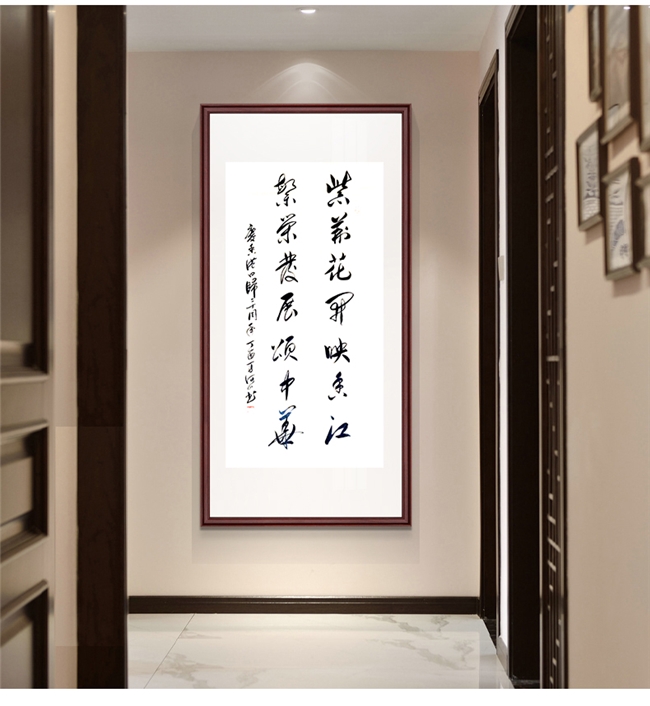 紫荊花開映香江
繁榮發展頌中華
慶香港回歸二十周年 丁酉